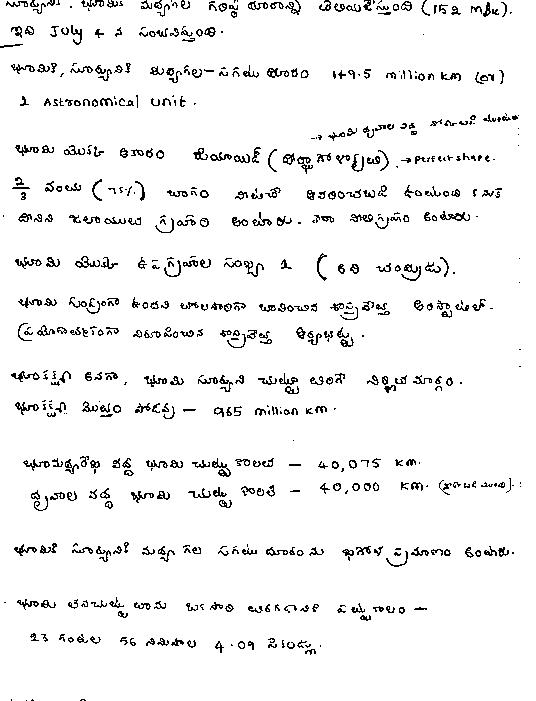 సూర్యుని, భూమికి మధ్యగల గరిష్ట దూరాన్ని తెలియజేస్తుంది (152 mkm).
ఇది July 4 న సంభవిస్తుంది.
భూమికి, సూర్యునికి మధ్యగల సగటు దూరం 149.5 million km (లేదా)
1 Astronomical Unit.
→ భూమి ధ్రువాల వద్ద
భూమి యొక్క ఆకారం జియోయిడ్ ( ) → Perfect shape.
2/3 వంతు (71%) భాగం నీటిచే ఆవరించబడి ఉంటుంది కనుక
దీనిని జలయుత గ్రహం అంటారు. లేదా నీలిగ్రహం అంటారు.
భూమి యొక్క ఉపగ్రహాల సంఖ్య 1 (అది చంద్రుడు).
భూమి గుండ్రంగా ఉందని భావించిన శాస్త్రవేత్త
ప్రయోగాత్మకంగా నిరూపించిన శాస్త్రవేత్త ఆర్యభట్ట.
భూకక్ష్య అనగా, భూమి సూర్యుని చుట్టూ తిరిగే నిర్ణీత మార్గం.
భూకక్ష్య మొత్తం పొడవు - 965 million km.
భూమధ్యరేఖ వద్ద భూమి చుట్టుకొలత - 40,075 km.
ధ్రువాల వద్ద భూమి చుట్టుకొలత - 40,000 km.
భూమికి సూర్యునికి మధ్య గల సగటు దూరంను ఖగోళ ప్రమాణం అంటారు.
భూమి తనచుట్టు తాను ఒకసారి తిరగడానికి పట్టుకాలం -
23 గంటల 56 నిమిషాల 4.09 సెకండ్లు.